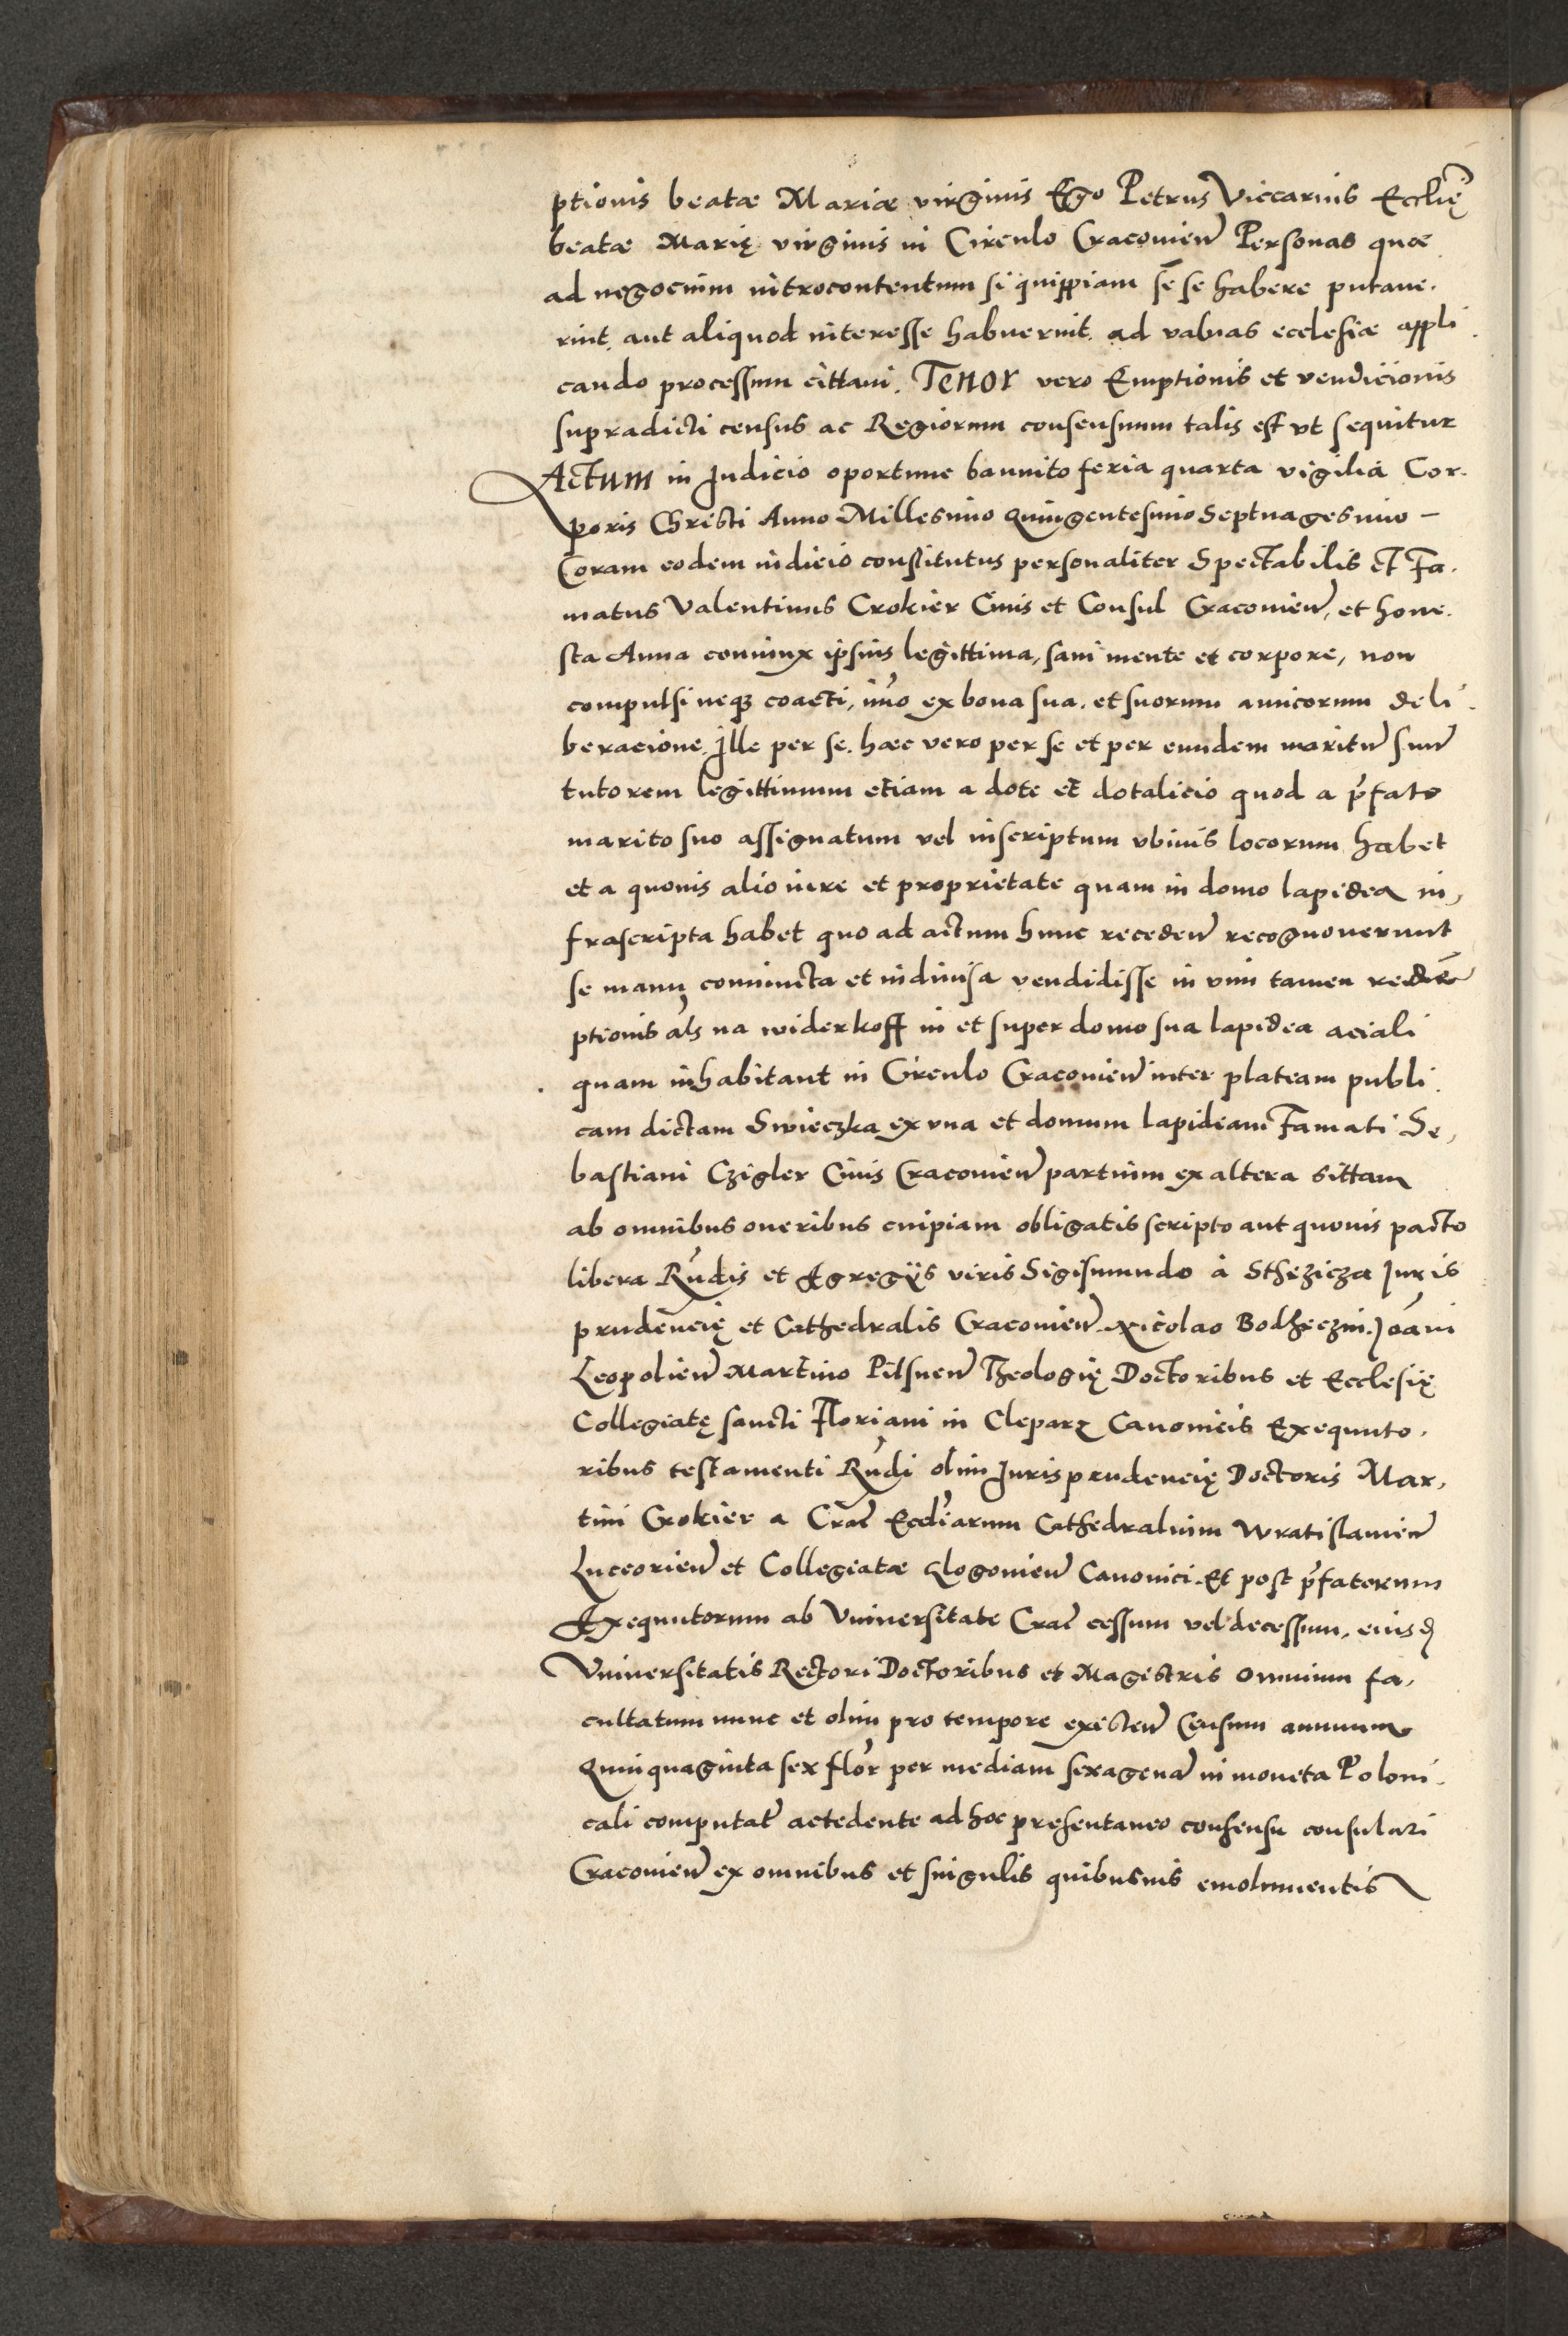 ptionis beatæ Mariæ virginis Ego Petrus Viccarius Ecclię
beatæ Marię virginis in Circulo Cracovieñ Personas quæ
ad negocium introcontentum si quippiam sē se habere putave.
rint, aut aliquod interesse habuerint, ad valvas ecclesiæ appli
cando processum cittavi. Tenor vero Emptionis et vendicionis
supradicti census ac Regiorum consensuum talis est ut sequitur
Actum in Judicio oportune bannito feria quarta vigilia Cor.
poris Christi Anno Millesimo Quingentesimo Septuagesimo –
Coram eodem iudicio constitutus personaliter Spectabilis et Fa.
matus Valentinus Crokier Civis et Consul Cracovieñ, et hone.
sta Anna coniunx ipsius legittima, sani mente et corpore, non
compulsi neqz coacti, imo ex bona sua, et suorum amicorum deli
beracione. Ille per se. hæc vero per se et per eundem maritū suū
tutorem legittimum etiam a dote et dotalicio quod a p̄fato
marito suo assignatum vel inscriptum ubivis locorum habet
et a quovis alio iure et proprietate quam in domo lapidea in,
frascripta habet quo ad actum hunc recedeñ recognoverunt
se manu coniuncta et indivisa vendidisse in vim tamen redē
ptionis als na widerkoff in et super domo sua lapidea aciali
quam inhabitant in Circulo Cracovieñ inter plateam publi.
cam dictam Swieczka ex una et domum lapideam Famati Se,
bastiani Czigler Civis Cracovieñ partium ex altera sittam
ab omnibus oneribus cuipiam obligatis scripto aut quovis pacto
libera Rñdis et Egregijs viris Sigismundo à Sthezicza Juris
prudencię et Cathedralis Cracovieñ. Nicolao Bodzeczin. Joāni
Leopolieñ Martino Pilsneñ Theologię Doctoribus et Ecclesię
Collegiatę sancti Floriani in Clepar Canonicis Exequuto.
ribus testamenti Rñdi olim Jurisprudencię Doctoris Mar,
tini Crokier a Crac Eccliarum Cathedralium Wratislavieñ
Luceorieñ et Collegiatæ Glogovieñ Canonici. Et post p̄fatorum
Exequutorum ab Universitate Crac cessum vel decessum, eiusd
Universitatis Rectori Doctoribus et Magistris omnium fa,
cultatum nunc et olim pro tempore existeñ Censum annuum
Quinquaginta sex flor per mediam sexagenā in moneta Poloni.
cali computat accedente ad hoc presentaneo consensu consulari
Cracovieñ ex omnibus et singulis quibusvis emolumentis